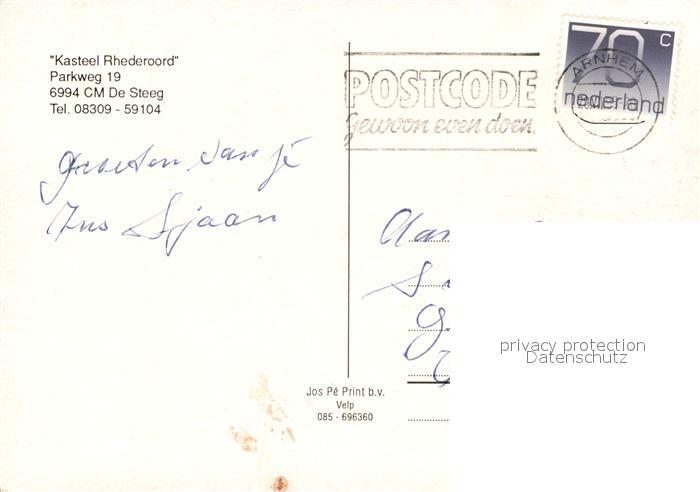 "Kasteel Rhederoord"
Parkweg 19
6994 CM De Steeg
Tel. 08309 - 59104
Groeten van je
Sjaan
POSTCODE
gewoon even doen.
70 c
nederland
ARNHEM
Aan
privacy protection
Datenschutz
Jos Pé Print b.v.
Velp
085 - 696360